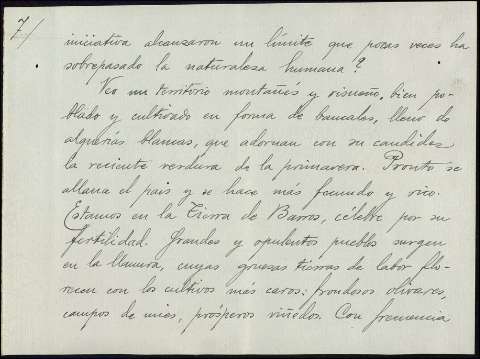 7/
iniciativa alcanzaron un límite que pocas veces ha
sobrepasado la naturaleza humana?
Veo un territorio montañés y risueño, bien po-
blado y cultivado en forma de bancales, lleno de
alquerías blancas, que adornan con su candidez
la reciente verdura de la primavera. Pronto se
allana el país y se hace más fecundo y rico.
Estamos en la Tierra de Barros, célebre por su
fertilidad. Grandes y opulentos pueblos surgen
en la llanura, cuyas gruesas tierras de labor flo-
recen con los cultivos más caros: frondosos olivares,
campos de mies, prósperos viñedos. Con frecuencia